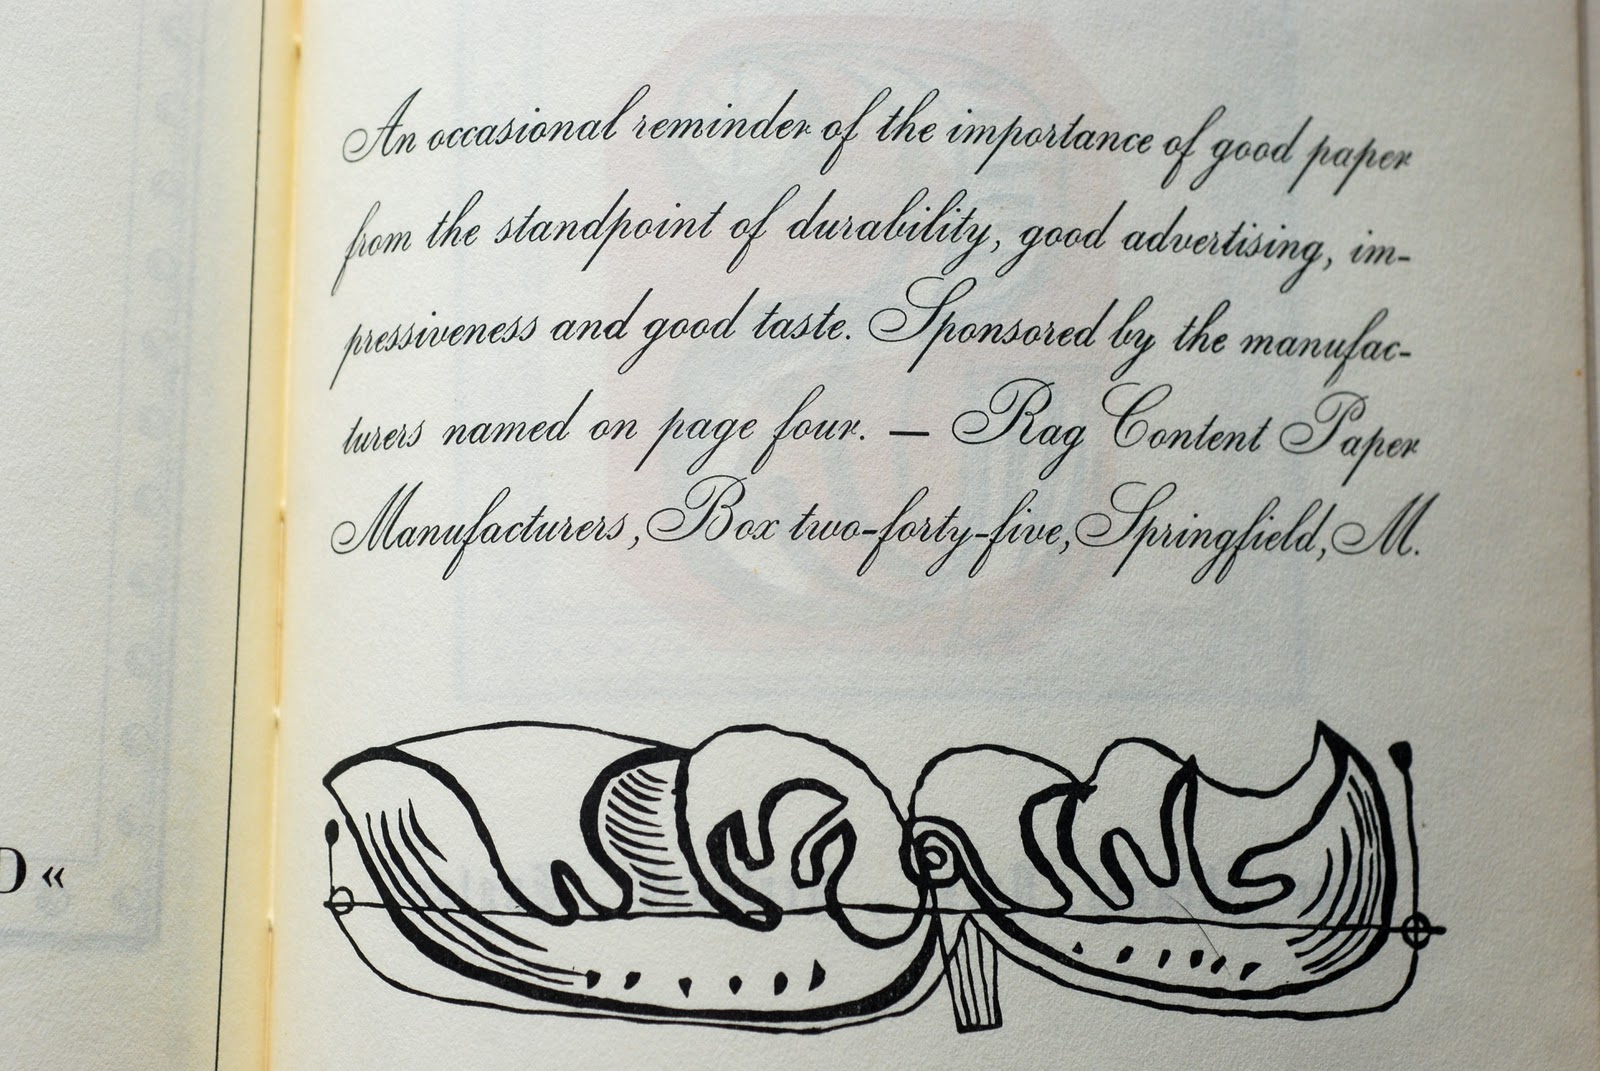 An occasional reminder of the importance of good paper
from the standpoint of durability, good advertising, im-
pressiveness and good taste. Sponsored by the manufac-
turers named on page four. — Rag Content Paper
Manufacturers, Box two-forty-five, Springfield, M.
D «